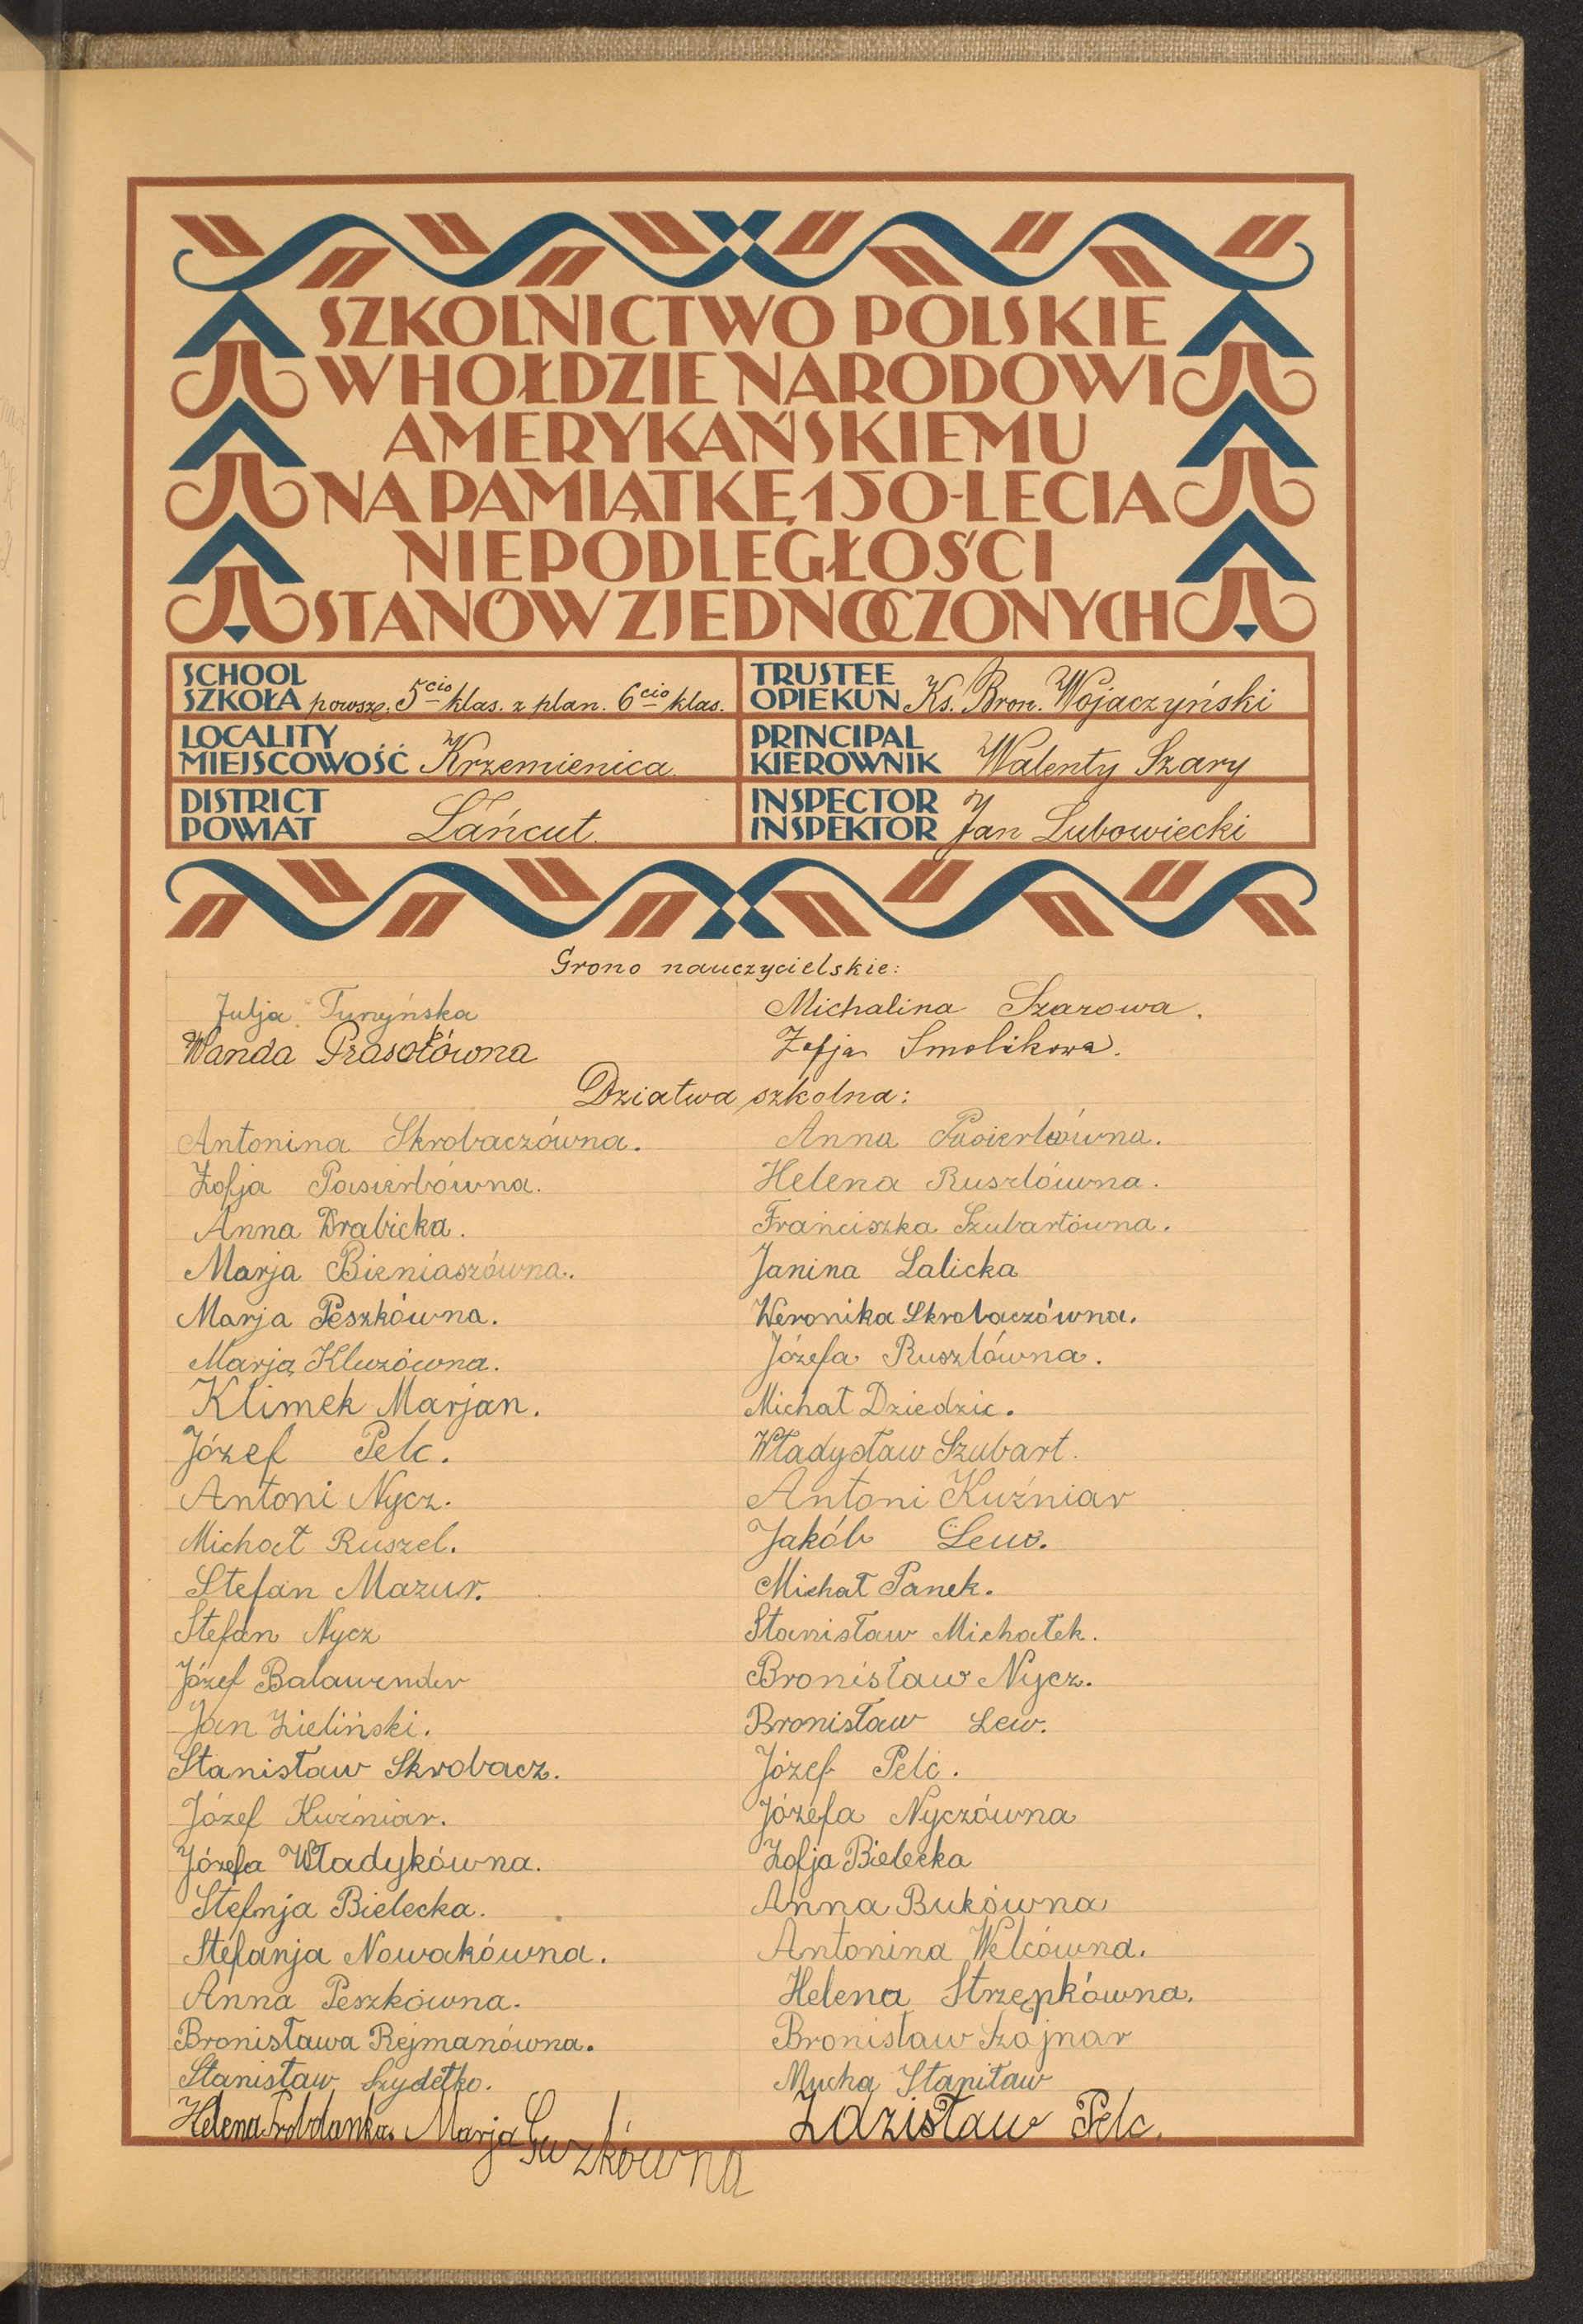 SZKOLNICTWO POLSKIE
W HOŁDZIE NARODOWI
AMERYKAŃSKIEMU
NA PAMIĄTKĘ 150-LECIA
NIEPODLEGŁOŚCI
STANÓW ZJEDNOCZONYCH
SCHOOL
SZKOŁA powsze. 5cio klas. z plan. 6cio klas.
TRUSTEE
OPIEKUN Ks. Bron. Wojaczyński
LOCALITY
MIEJSCOWOŚĆ Krzemienica
PRINCIPAL
KIEROWNIK Walenty Szary
DISTRICT
POWIAT Łańcut.
INSPECTOR
INSPEKTOR Jan Lubowiecki
Grono nauczycielskie:
Julja
Michalina Szarowa.
Wanda Prasołówna
Zofja Smolikowa.
Dziatwa szkolna:
Antonina Skrobaczówna.
Anna Pasierbówna.
Zofja Pasierbówna.
Helena Ruszlówna.
Anna Drabicka.
Franciszka Szubartówna.
Marja Bieniaszówna.
Janina Lalicka
Marja Peszkówna.
Weronika Skrobaczówna.
Marja Kluzówna.
Józefa Ruszlówna.
Klimek Marjan.
Michał Dziedzic.
Józef Pelc.
Władysław Szubart.
Antoni Nycz.
Antoni Kuźniar
Michał Ruszel.
Jakób Lew.
Stefan Mazur.
Michał Panek.
Stefan Nycz
Stanisław Michałek.
Józef Balawender
Bronisław Nycz.
Jan Zieliński.
Bronisław Lew.
Stanisław Skrobacz.
Józef Pelc.
Józef Kuźniar.
Józefa Nyczówna
Józefa Władykówna.
Zofja Bielecka
Stefnja Bielecka.
Anna Bukówna
Stefanja Nowakówna.
Antonina Welcówna.
Anna Peszkówna.
Helena Strzępkówna.
Bronisława Rejmanówna.
Bronisław Szajnar
Stanisław Szydełko.
Mucha Stanitaw
Helena Marja Guzkówna
Zdzisław Pelc.